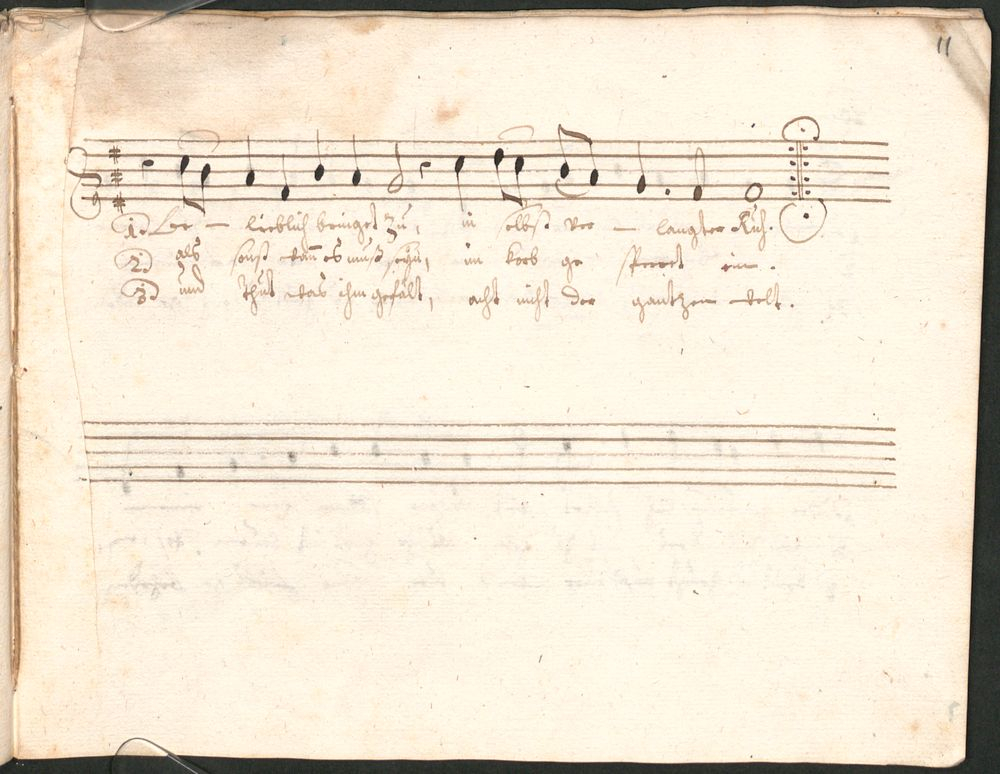 11
1. Er — lieblich bringet zu, in selbst ver — langter Ruh.
2. als sonst kan es muß seyn, im korb ge sperret ein.
3. und thut was ihm gefält, acht nicht der gantzen welt.